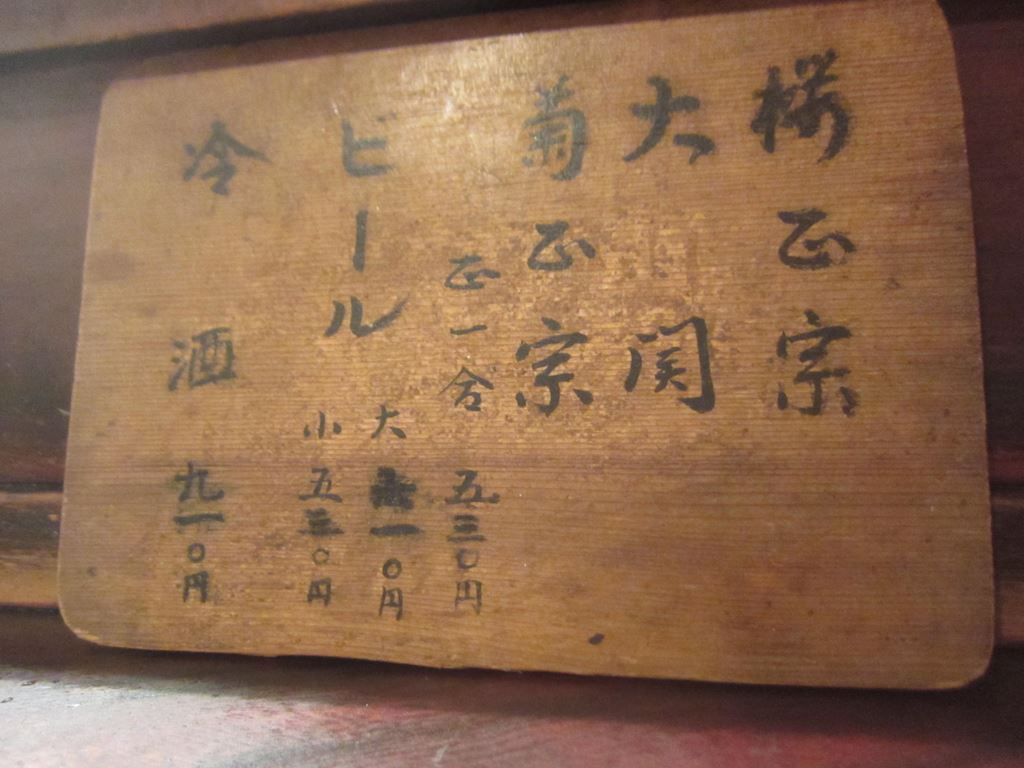 桜正宗
大関
菊正宗
正一合 五三〇円
ビール
大 一〇円
小 五三〇円
冷酒 九一〇円